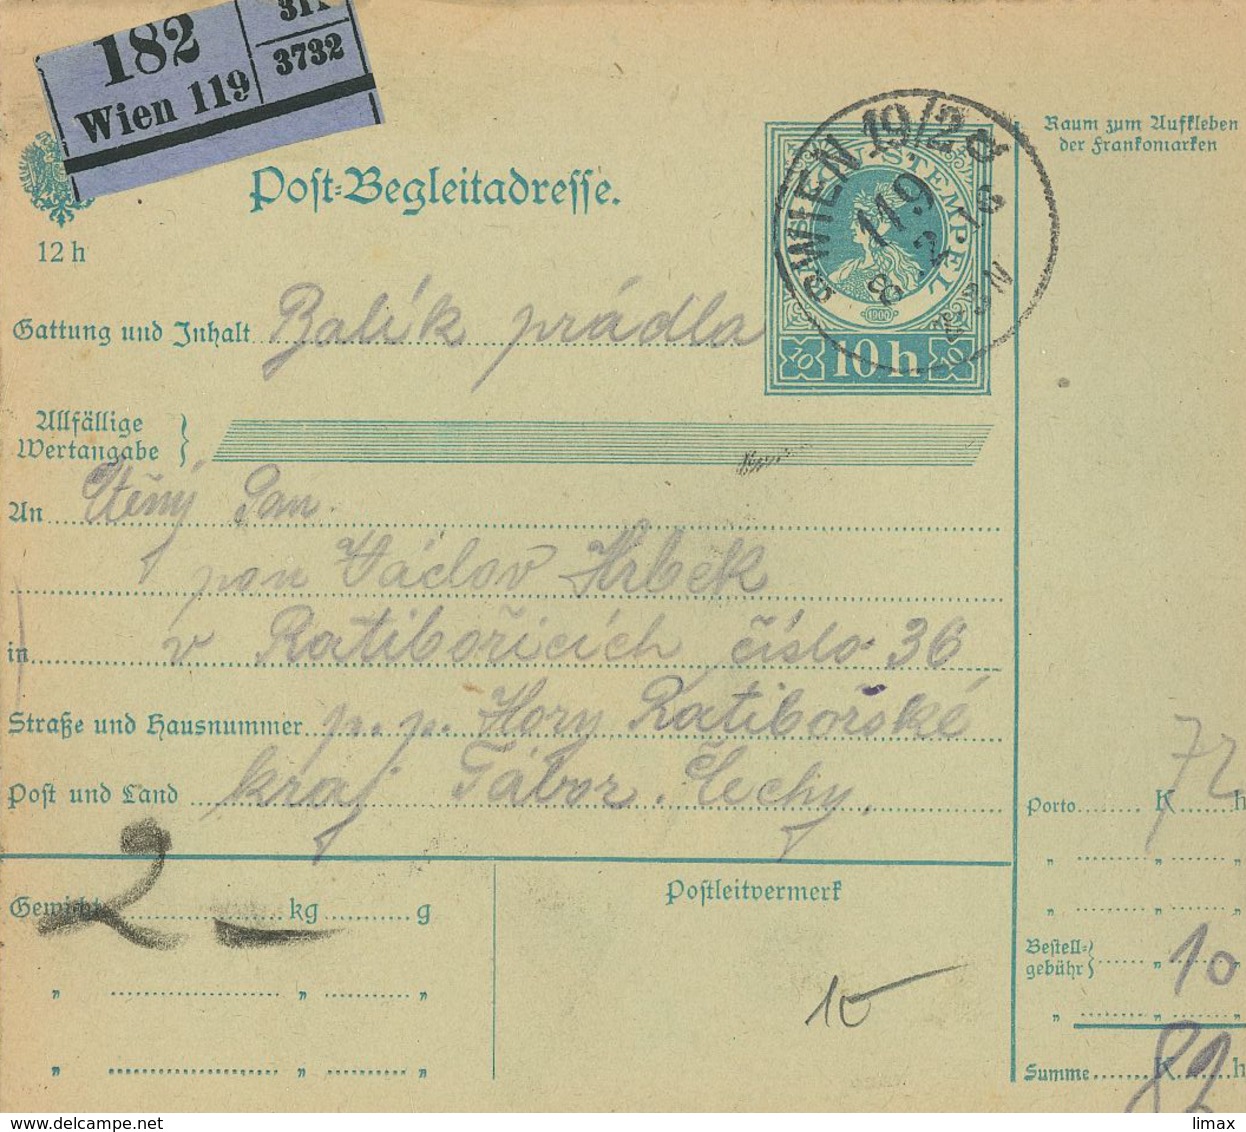 182
Wien 119
3732
Post-Begleitadresse.
12 h
Raum zum Aufkleben
der Frankomarken
STEMPEL
WIEN 19/2
119
8. 2. 13
1900
10 10 h 10
Gattung und Inhalt Balík prádla
Allfällige
Wertangabe
An Ctěný Pan
pan Václav Hrbek
in v Ratibořicích číslo 36
Straße und Hausnummer p. p. Hory Ratibořské
Post und Land kraj Tábor. Čechy.
Porto K 72 h
" " "
" " "
Gewicht 2 — kg g
" " "
" " "
Postleitvermerk
Bestell-
gebühr " 10 "
" " "
Summe K 82 h
limax